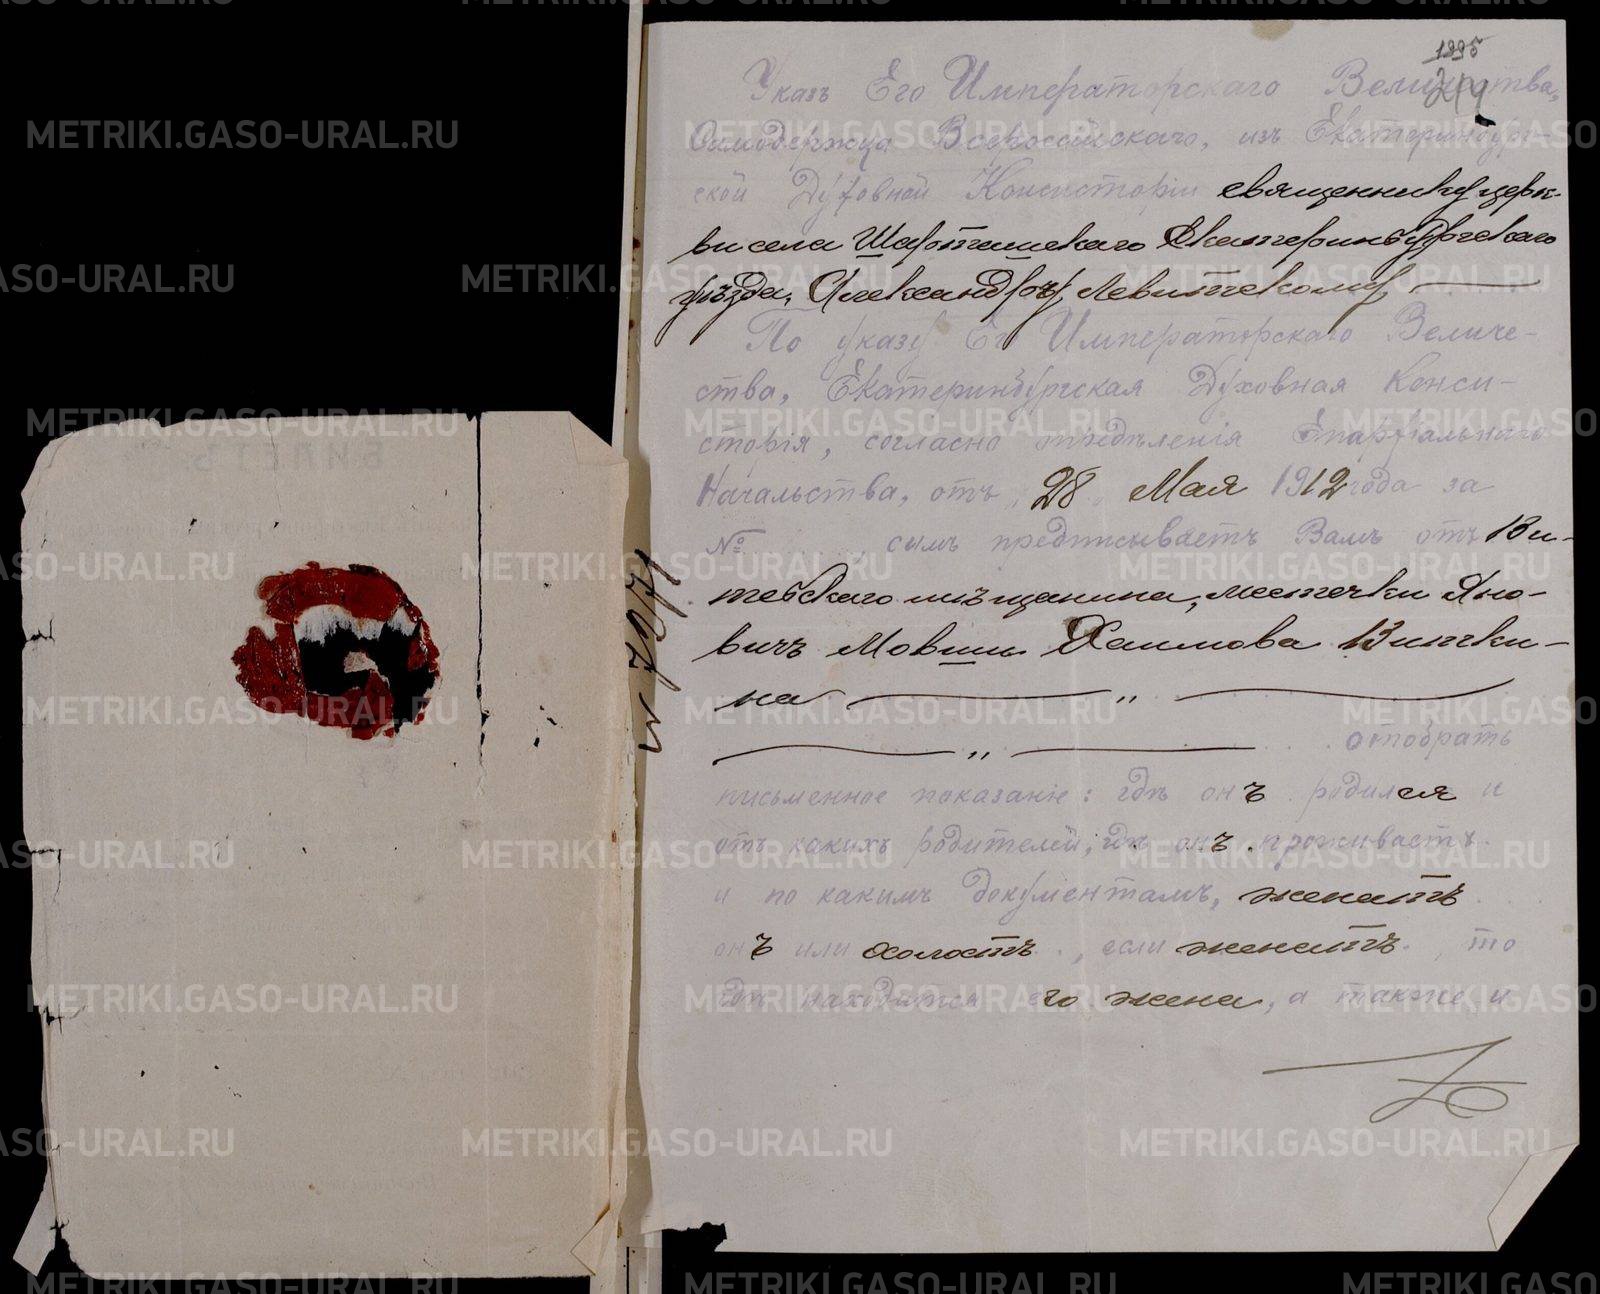 1995
219
Указъ Его Императорскаго Величества,
Самодержца Всероссійскаго, изъ Екатеринбург-
ской Духовной Консисторіи священнику церк-
ви села Шарташскаго Екатеринбургскаго
уѣзда, Александръ, Левитскому
По указу Его Императорскаго Величе-
ства, Екатеринбургская Духовная Конси-
сторія, согласно опредѣленія Епархіальнаго
Начальства, отъ 28 Мая 1912 года за
№ , симъ предписываетъ Вамъ отъ Ви-
тебскаго мѣщанина, местечки Яно-
вичъ Мовши Хаимова Виткин-
на "
" отобрать
письменное показаніе: гдѣ онъ родился и
отъ какихъ родителей, гдѣ онъ проживаетъ
и по какимъ документамъ, женатъ
онъ или холостъ, если женатъ, то
гдѣ находится его жена, а также и
БИЛЕТЪ
METRIKI.GASO-URAL.RU